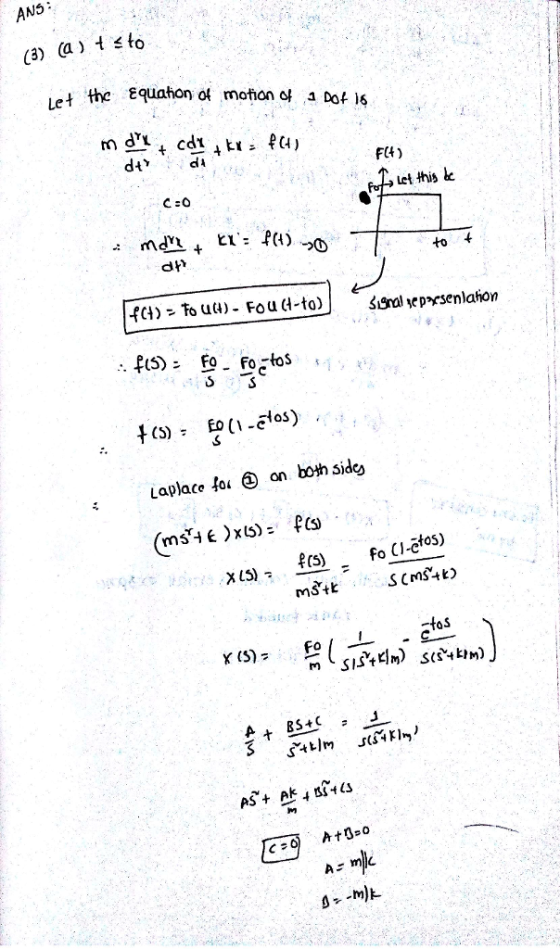 ANS:
(3) (a) t ≤ to
Let the Equation of motion of 1 Dof is
m d²x/dt² + cdx/dt + kx = f(t)
F(t)
Fo → Let this be
to t
c=0
∴ md²x/dt² + kx = f(t) → ①
f(t) = Fo u(t) - Fo u(t-to)
Signal representation
∴ f(s) = Fo/s - Fo/s e^-tos
∴ f(s) = Fo/s (1 - e^-tos)
∴ Laplace for ① on both sides
(ms² + k) x(s) = f(s)
x(s) = f(s)/ms²+k = Fo (1-e^-tos)/s(ms²+k)
x(s) = Fo/m (1/s(s²+k/m) - e^-tos/s(s²+k/m))
A/s + Bs+c/s²+k/m = 1/s(s²+k/m)
As² + Ak/m + Bs² + cs
c=0 A+B=0
A = m/k
B = -m/k